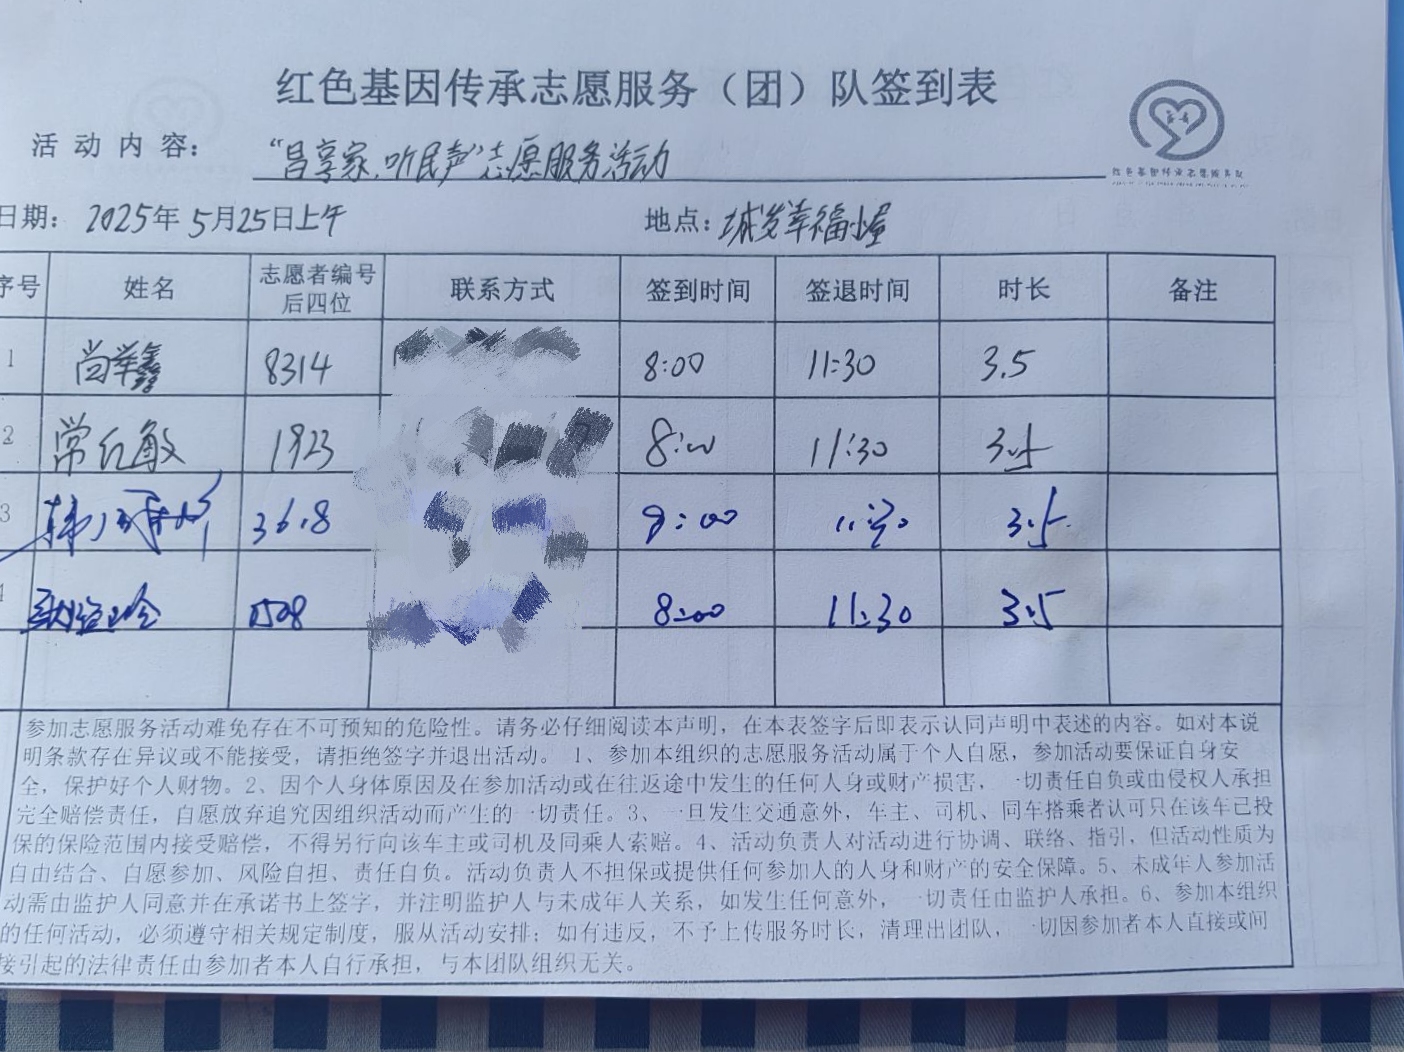 红色基因传承志愿服务（团）队签到表
活动内容：“吕享家.听民声”志愿服务活动
日期：2025年5月25日上午 地点：城发幸福小屋
序号 姓名 志愿者编号后四位 联系方式 签到时间 签退时间 时长 备注
1 尚举鑫 8314 8:00 11:30 3.5
2 常红敏 1923 8:00 11:30 3.5
3 8:00 11:30 3.5
4 8:00 11:30 3.5
参加志愿服务活动难免存在不可预知的危险性。请务必仔细阅读本声明，在本表签字后即表示认同声明中表述的内容。如对本说
明条款存在异议或不能接受，请拒绝签字并退出活动。 1、参加本组织的志愿服务活动属于个人自愿，参加活动要保证自身安
全，保护好个人财物。2、因个人身体原因及在参加活动或在往返途中发生的任何人身或财产损害，一切责任自负或由侵权人承担
完全赔偿责任，自愿放弃追究因组织活动而产生的一切责任。3、一旦发生交通意外，车主、司机、同车搭乘者认可只在该车已投
保的保险范围内接受赔偿，不得另行向该车主或司机及同乘人索赔。4、活动负责人对活动进行协调、联络、指引，但活动性质为
自由结合、自愿参加、风险自担、责任自负。活动负责人不担保或提供任何参加人的人身和财产的安全保障。5、未成年人参加活
动需由监护人同意并在承诺书上签字，并注明监护人与未成年人关系，如发生任何意外，一切责任由监护人承担。6、参加本组织
的任何活动，必须遵守相关规定制度，服从活动安排；如有违反，不予上传服务时长，清理出团队，一切因参加者本人直接或间
接引起的法律责任由参加者本人自行承担，与本团队组织无关。